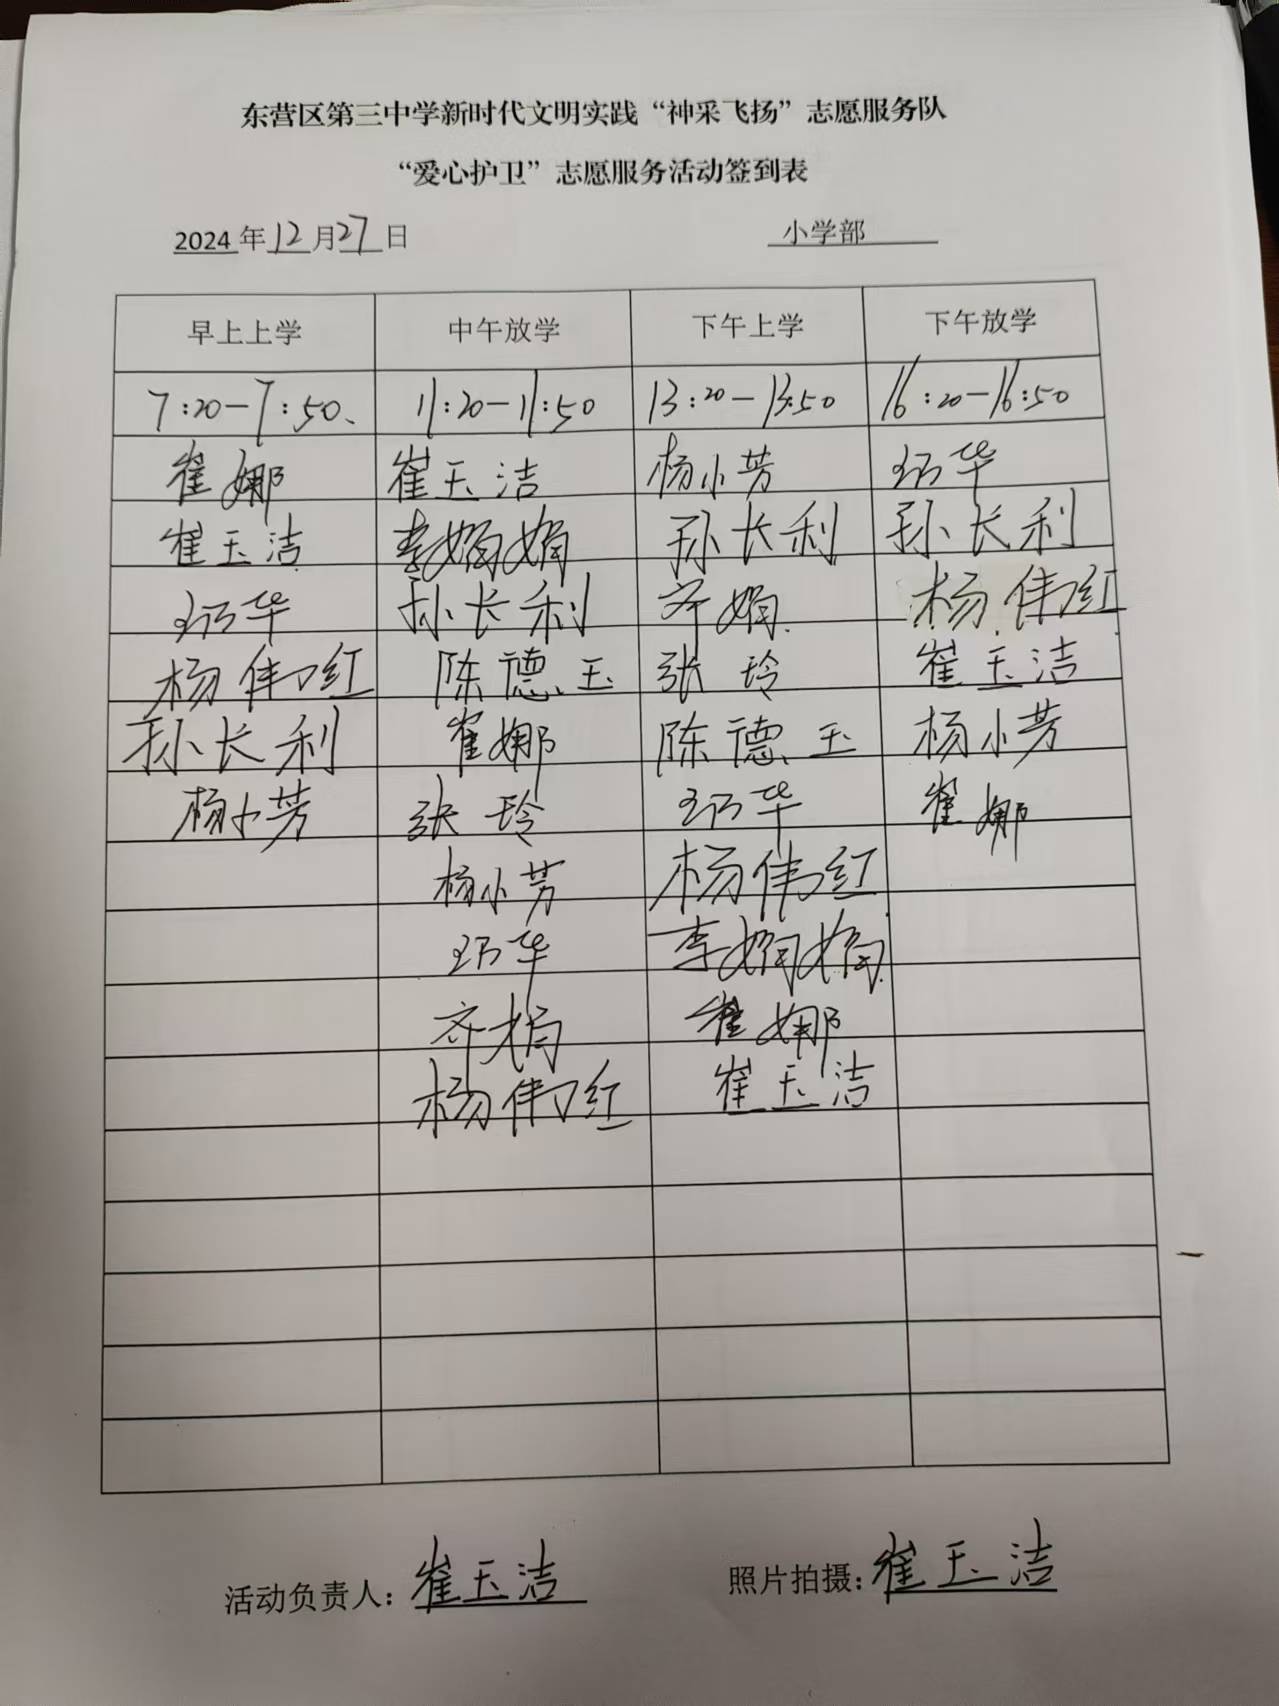 东营区第三中学新时代文明实践“神采飞扬”志愿服务队
“爱心护卫”志愿服务活动签到表
2024 年 12 月 27 日 小学部
早上上学 中午放学 下午上学 下午放学
7:20-7:50、 11:20-11:50 13:20-13:50 16:20-16:50
崔娜 崔玉洁 杨小芳 华
崔玉洁 李娟娟 孙长利 孙长利
华 孙长利 齐娟 杨伟红
杨伟红 陈德玉 张玲 崔玉洁
孙长利 崔娜 陈德玉 杨小芳
杨小芳 张玲 华 崔娜
杨小芳 杨伟红
华 李娟娟
齐娟 崔娜
杨伟红 崔玉洁
活动负责人：崔玉洁 照片拍摄：崔玉洁